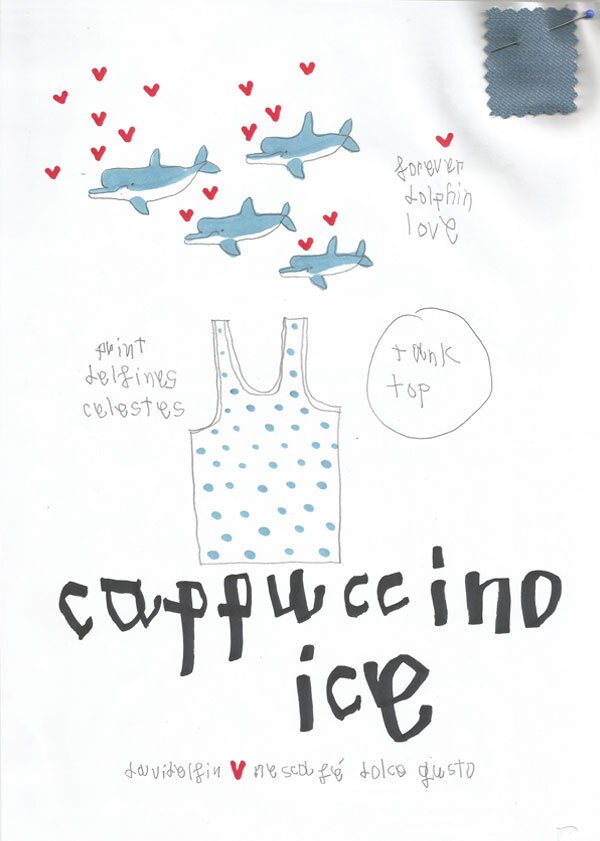 forever
dolphin
love
print
delfines
celestes
tank
top
cappuccino
ice
davidelfin ♥ nescafé dolce gusto